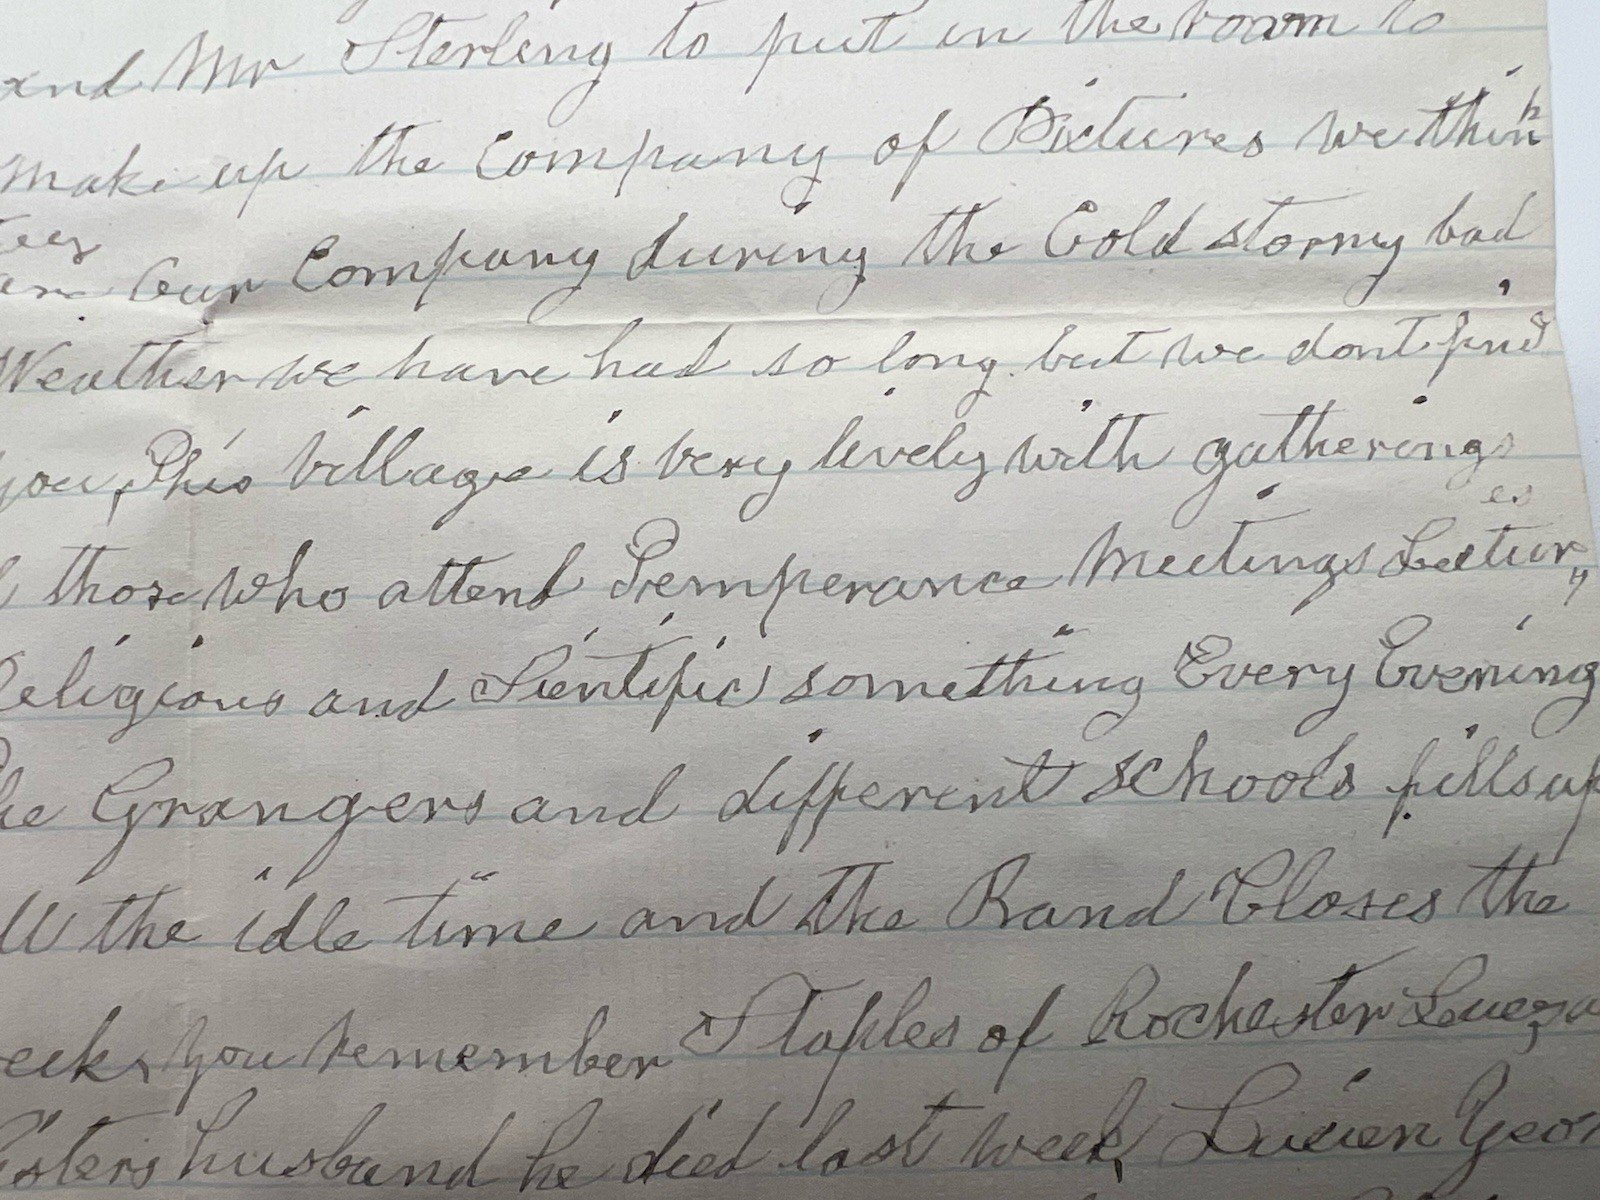 and Mr Sterling to put in the room to
make up the Company of Pictures we think
are our Company during the Cold stormy bad
Weather we have had so long but we dont find
you, This Village is very lively with gatherings
those who attend Temperance Meetings Lectures
Religious and Sientific something Every Evening
Grangers and different schools fills up
the idle time and the Band Closes the
you remember Staples of Rochester
Sisters husband he died last week, Lucien